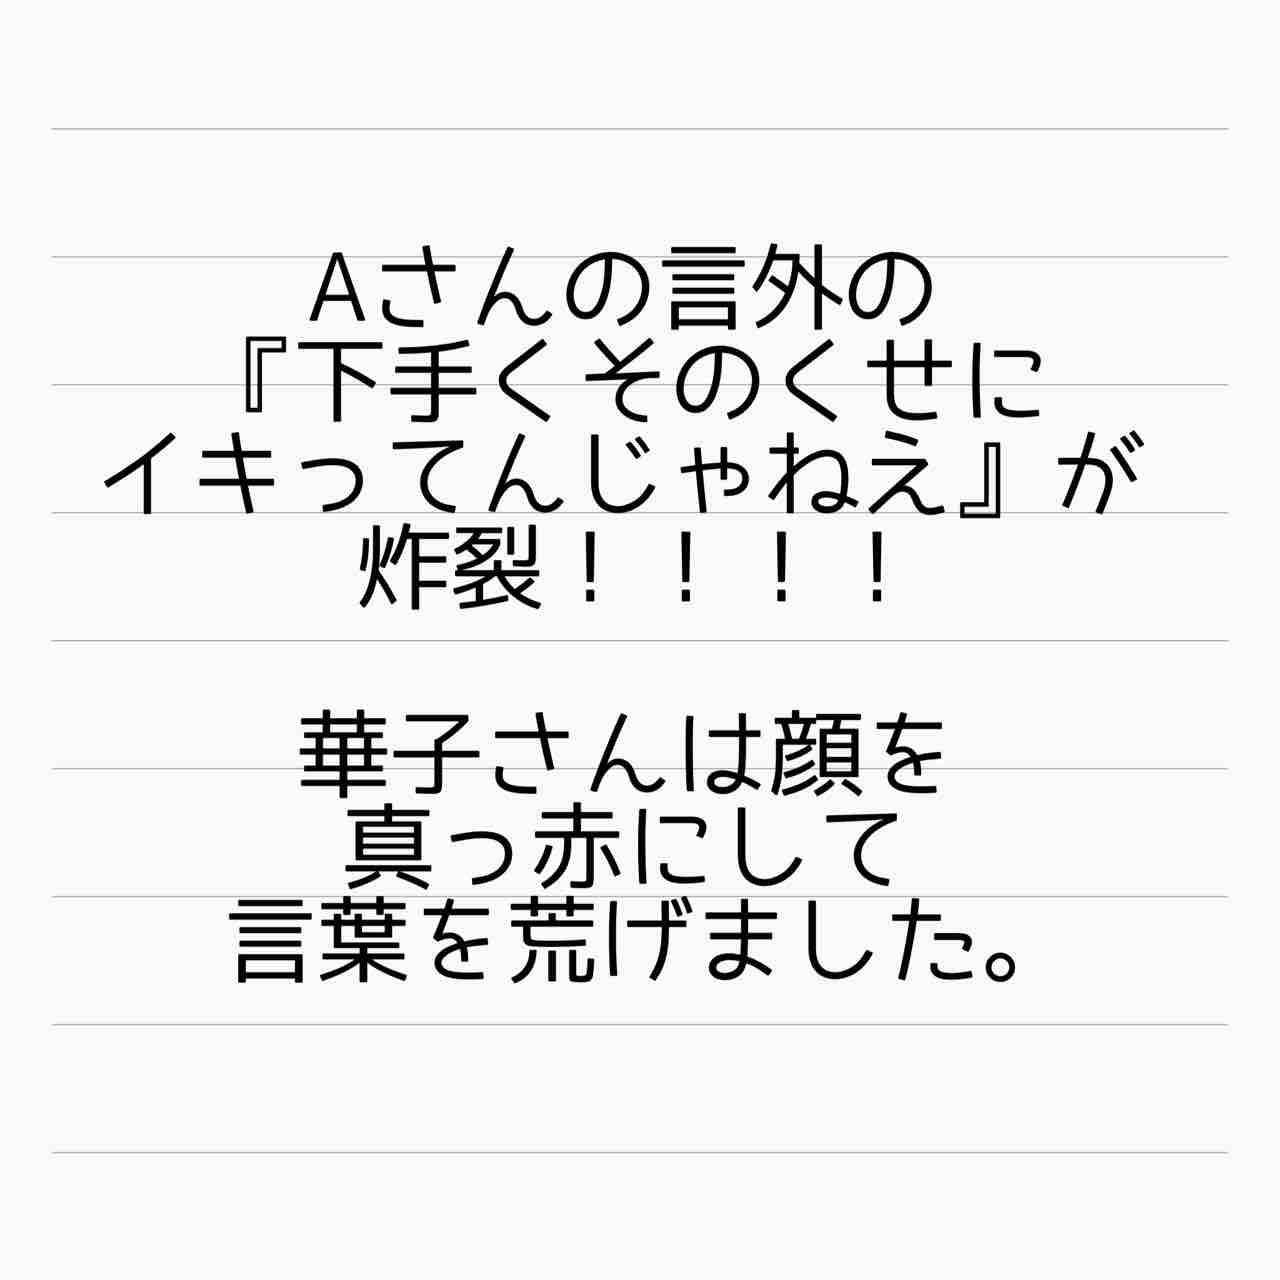 Aさんの言外の
『下手くそのくせに
イキってんじゃねえ』が
炸裂！！！！
華子さんは顔を
真っ赤にして
言葉を荒げました。